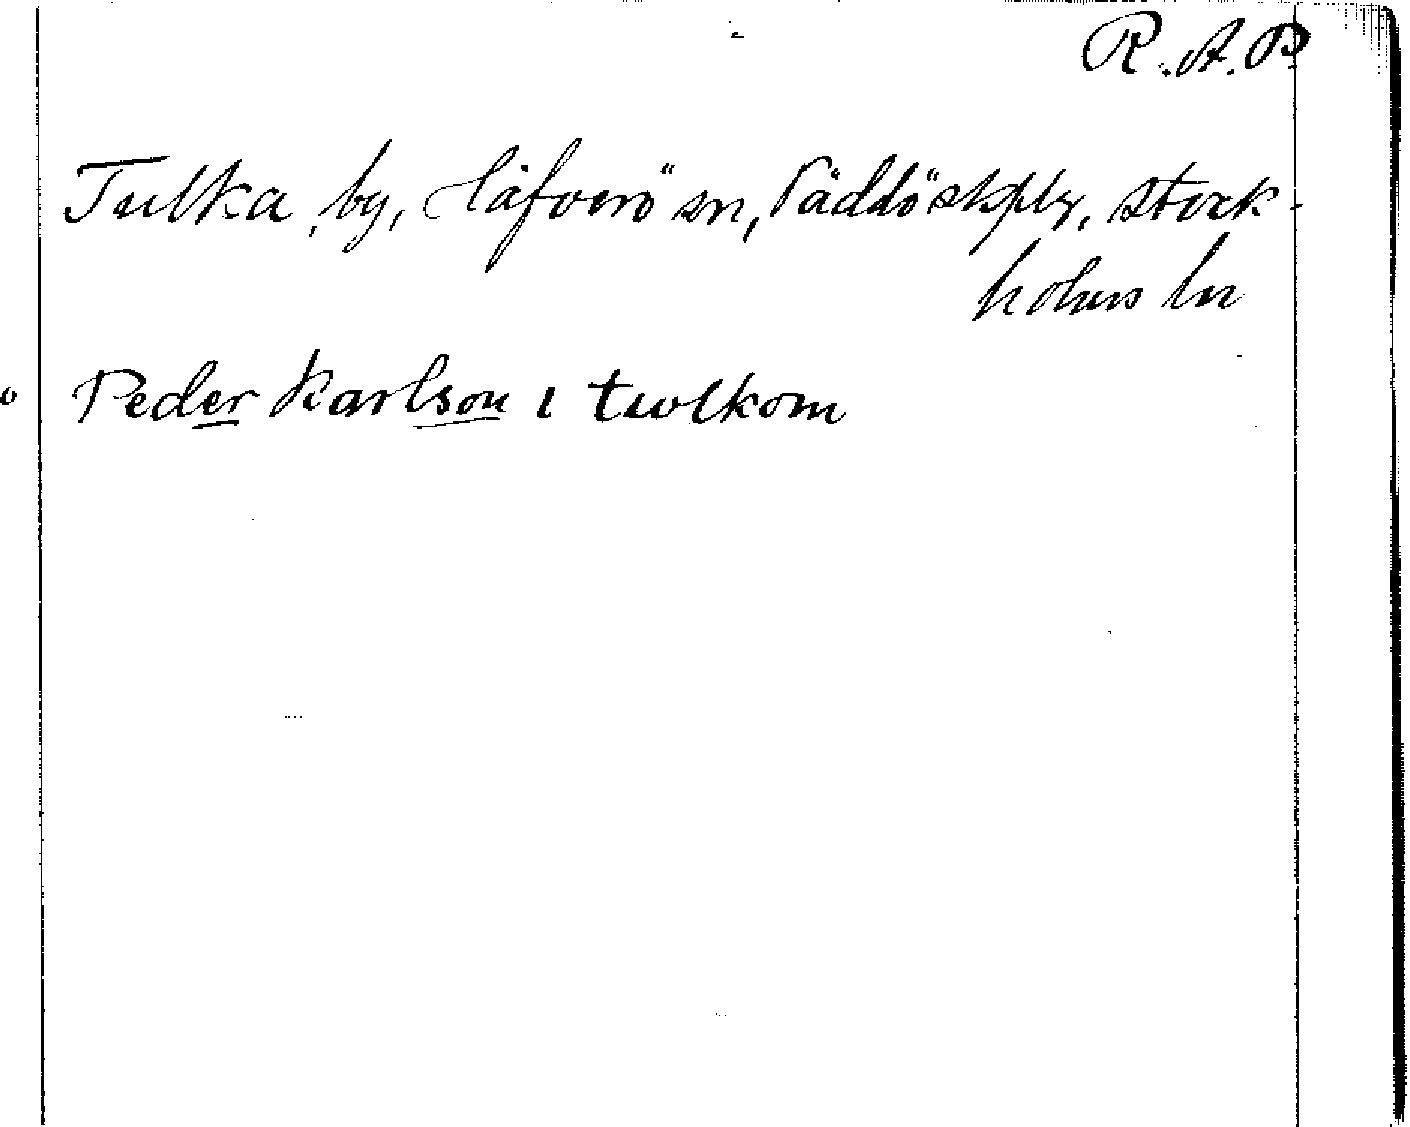 R.A.P
Tulka, by, Häfverö sn, Väddö skplg, Stock-
holms ln
Peder Karlson i twlkom